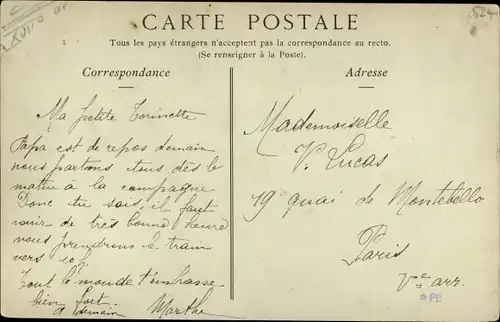 XVIIIe ar
524
CARTE POSTALE
Tous les pays étrangers n'acceptent pas la correspondance au recto.
(Se renseigner à la Poste).
Correspondance
Ma petite Torinette
Papa est de repos demain
nous partons tous dès le
matin à la campagne
Donc tu sais, il faut
venir de très bonne heure
nous prendrons le train
vers 10h.
Tout le monde t'embrasse
bien fort.
à demain Marthe
Adresse
Mademoiselle
V. Lucas
19 quai de Montebello
Paris
Ve arr.
*PE